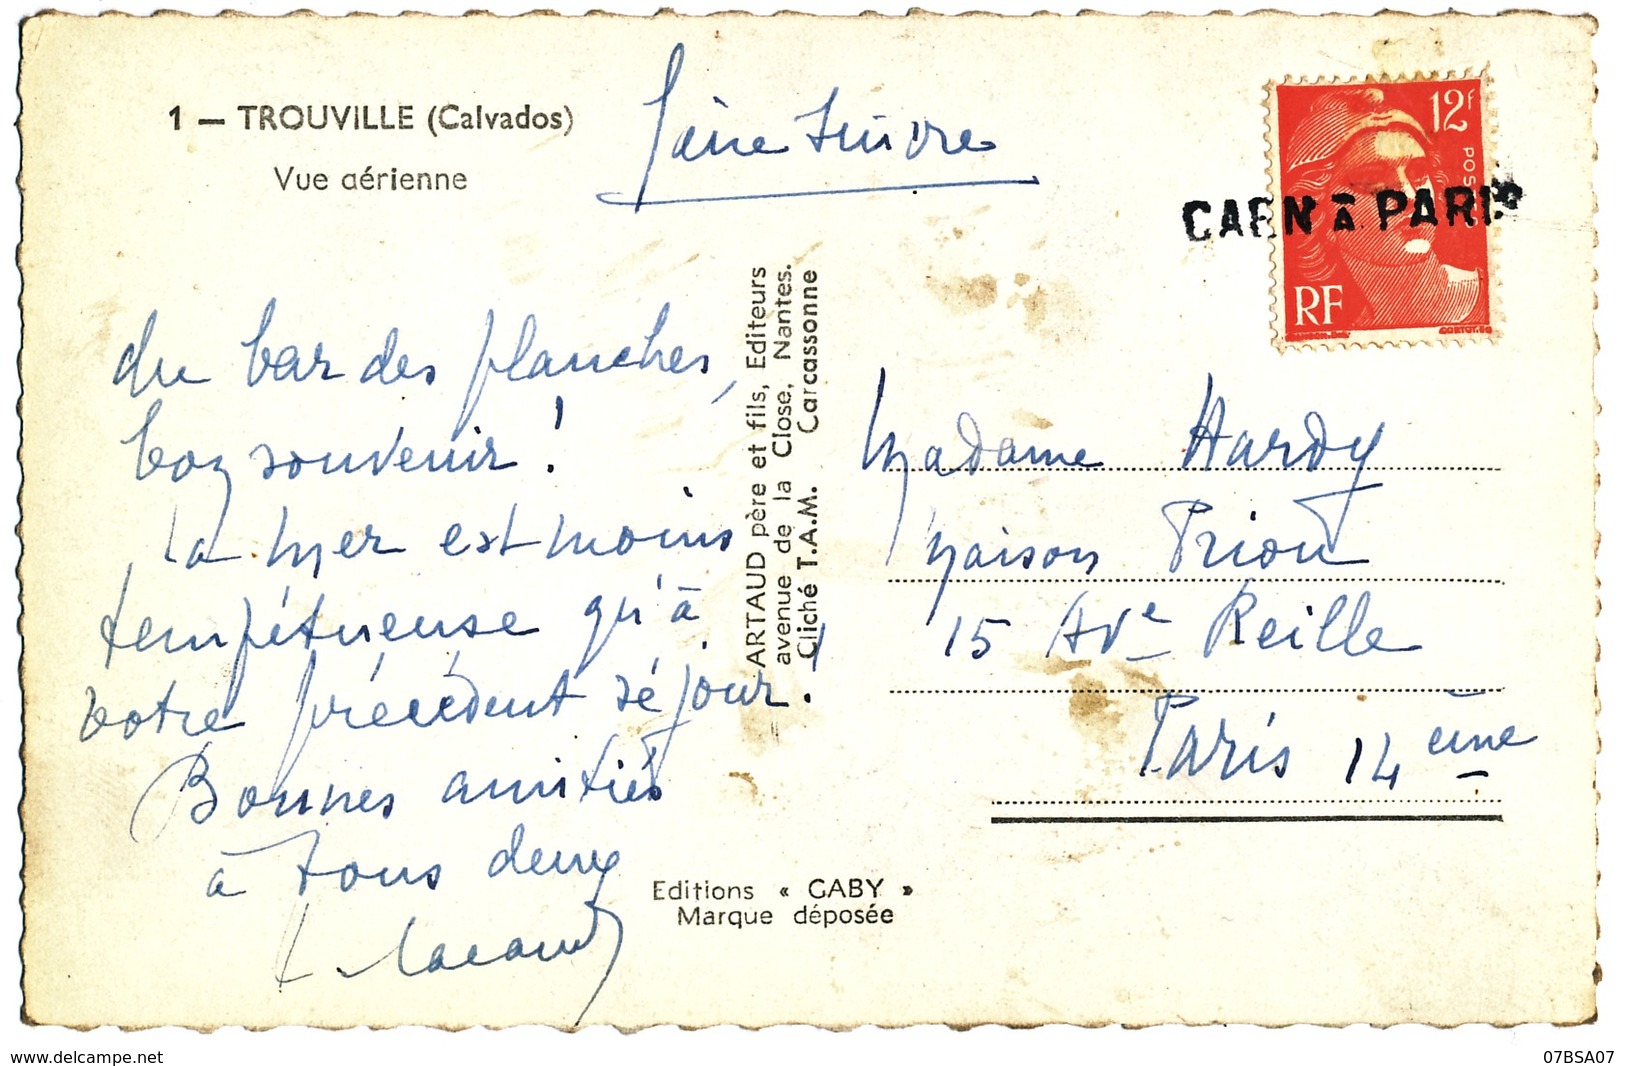 1 — TROUVILLE (Calvados)
Vue aérienne
faire suivre
12F
POSTES
RF
CORTOT. SC
CAEN À PARIS
du bar des planches,
bon souvenir !
la mer est moins
tempétueuse qu'à
votre précédent séjour.
Bonnes amitiés
à tous deux
ARTAUD père et fils, Editeurs
avenue de la Close, Nantes.
Cliché T.A.M. Carcassonne
Madame Hardy
Maison Priou
15 Ave Reille
Paris 14 ème
Editions « GABY »
Marque déposée
delcampe.net
07BSA07